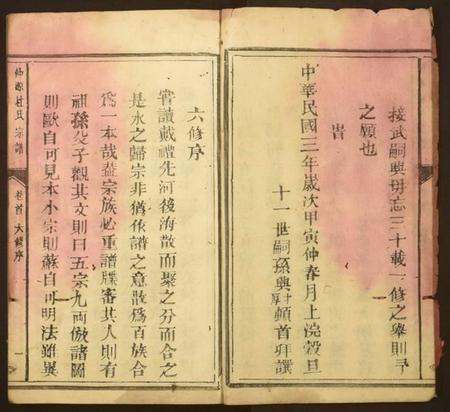 接武嗣興毋忘三十載一修之舉則予
之願也
旹
中華民國三年歲次甲寅仲春月上浣穀旦
十一世嗣孫興 頓首拜譔
六修序
嘗讀戴禮先河後海散而聚之分而合之
是水之歸宗非猶依譜之意散為百族合
為一本哉葢宗族必重譜牒審其人則有
祖孫父子觀其文則曰五宗九兩倣諸圖
則歐自可見本小宗則蘇自可明法雖與
杜氏宗譜
卷首 六修序 一